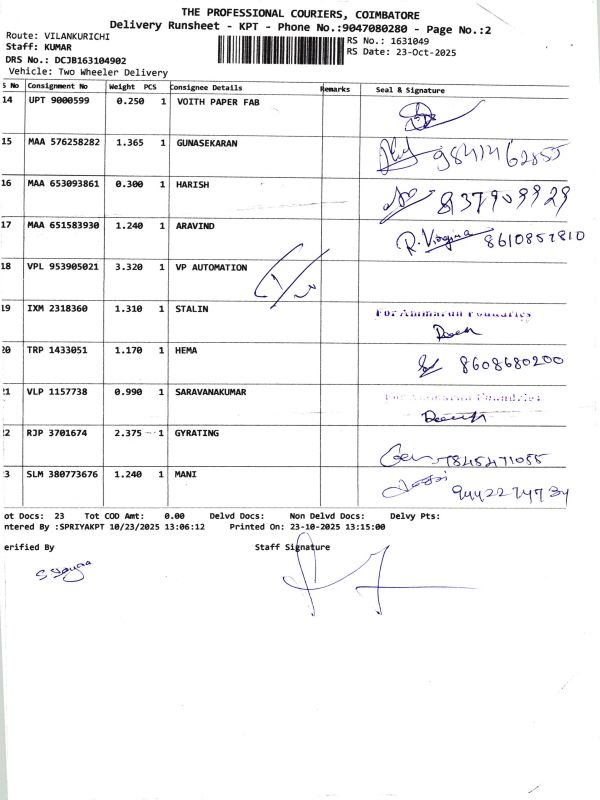 THE PROFESSIONAL COURIERS, COIMBATORE
Delivery Runsheet - KPT - Phone No.:9047080280 - Page No.:2
Route: VILANKURICHI
RS No.: 1631049
Staff: KUMAR
RS Date: 23-Oct-2025
DRS No.: DCJB163104902
Vehicle: Two Wheeler Delivery
S No Consignment No Weight PCS Consignee Details Remarks Seal & Signature
14 UPT 9000599 0.250 1 VOITH PAPER FAB
15 MAA 576258282 1.365 1 GUNASEKARAN 9841462855
16 MAA 653093861 0.300 1 HARISH
17 MAA 651583930 1.240 1 ARAVIND R. Virgina
18 VPL 953905021 3.320 1 VP AUTOMATION
19 IXM 2318360 1.310 1 STALIN For Ammarun Foundries
20 TRP 1433051 1.170 1 HEMA 8608680200
21 VLP 1157738 0.990 1 SARAVANAKUMAR For Ammarun Foundries
22 RJP 3701674 2.375 1 GYRATING 7845471055
23 SLM 380773676 1.240 1 MANI
ot Docs: 23 Tot COD Amt: 0.00 Delvd Docs: Non Delvd Docs: Delvy Pts:
ntered By :SPRIYAKPT 10/23/2025 13:06:12 Printed On: 23-10-2025 13:15:00
erified By Staff Signature